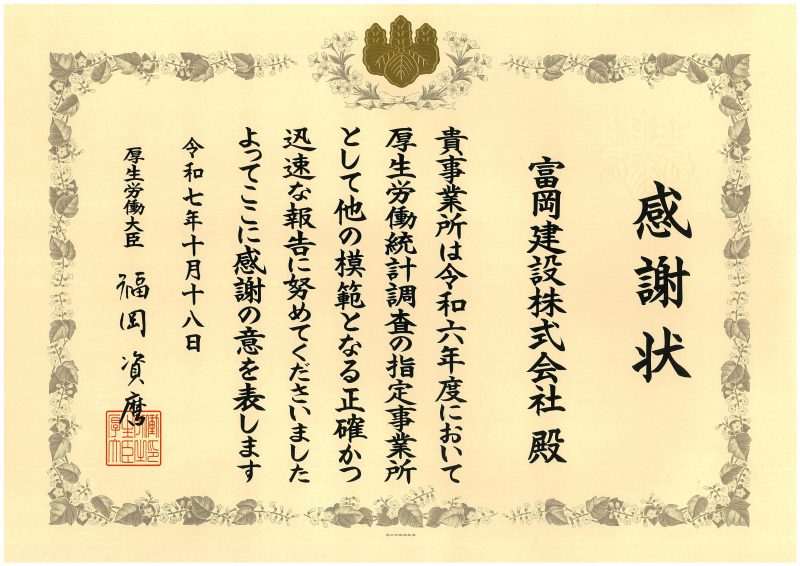 感謝状
富岡建設株式会社 殿
貴事業所は令和六年度において
厚生労働統計調査の指定事業所
として他の模範となる正確かつ
迅速な報告に努めてくださいました
よってここに感謝の意を表します
令和七年十月十八日
厚生労働大臣 福岡資麿